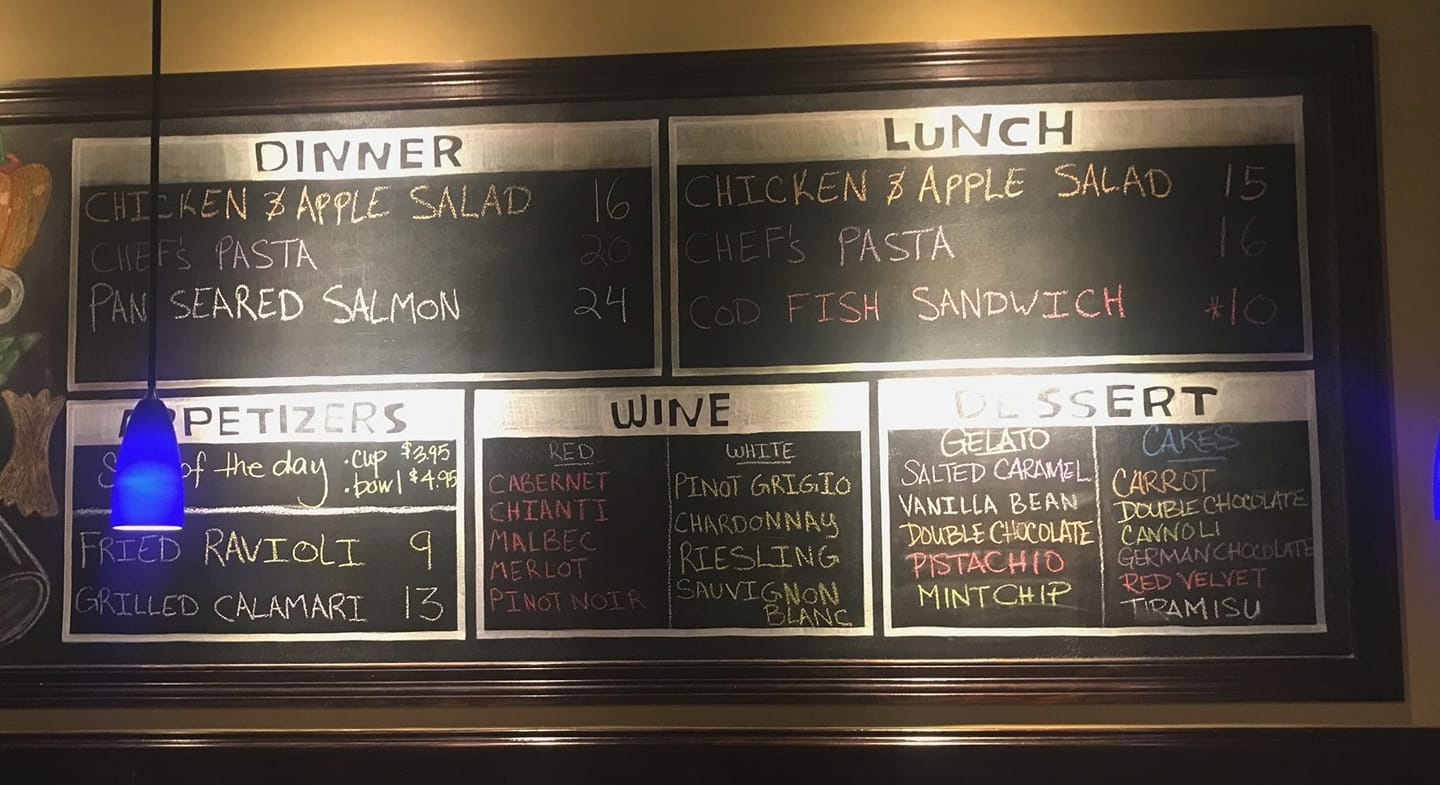 DINNER
CHICKEN & APPLE SALAD 16
CHEF'S PASTA 20
PAN SEARED SALMON 24
LUNCH
CHICKEN & APPLE SALAD 15
CHEF'S PASTA 16
COD FISH SANDWICH *10
APPETIZERS
of the day • cup $3.95
• bowl $4.95
FRIED RAVIOLI 9
GRILLED CALAMARI 13
WINE
RED
CABERNET
CHIANTI
MALBEC
MERLOT
PINOT NOIR
WHITE
PINOT GRIGIO
CHARDONNAY
RIESLING
SAUVIGNON
BLANC
DESSERT
GELATO
SALTED CARAMEL
VANILLA BEAN
DOUBLE CHOCOLATE
PISTACHIO
MINT CHIP
CAKES
CARROT
DOUBLE CHOCOLATE
CANNOLI
GERMAN CHOCOLATE
RED VELVET
TIRAMISU